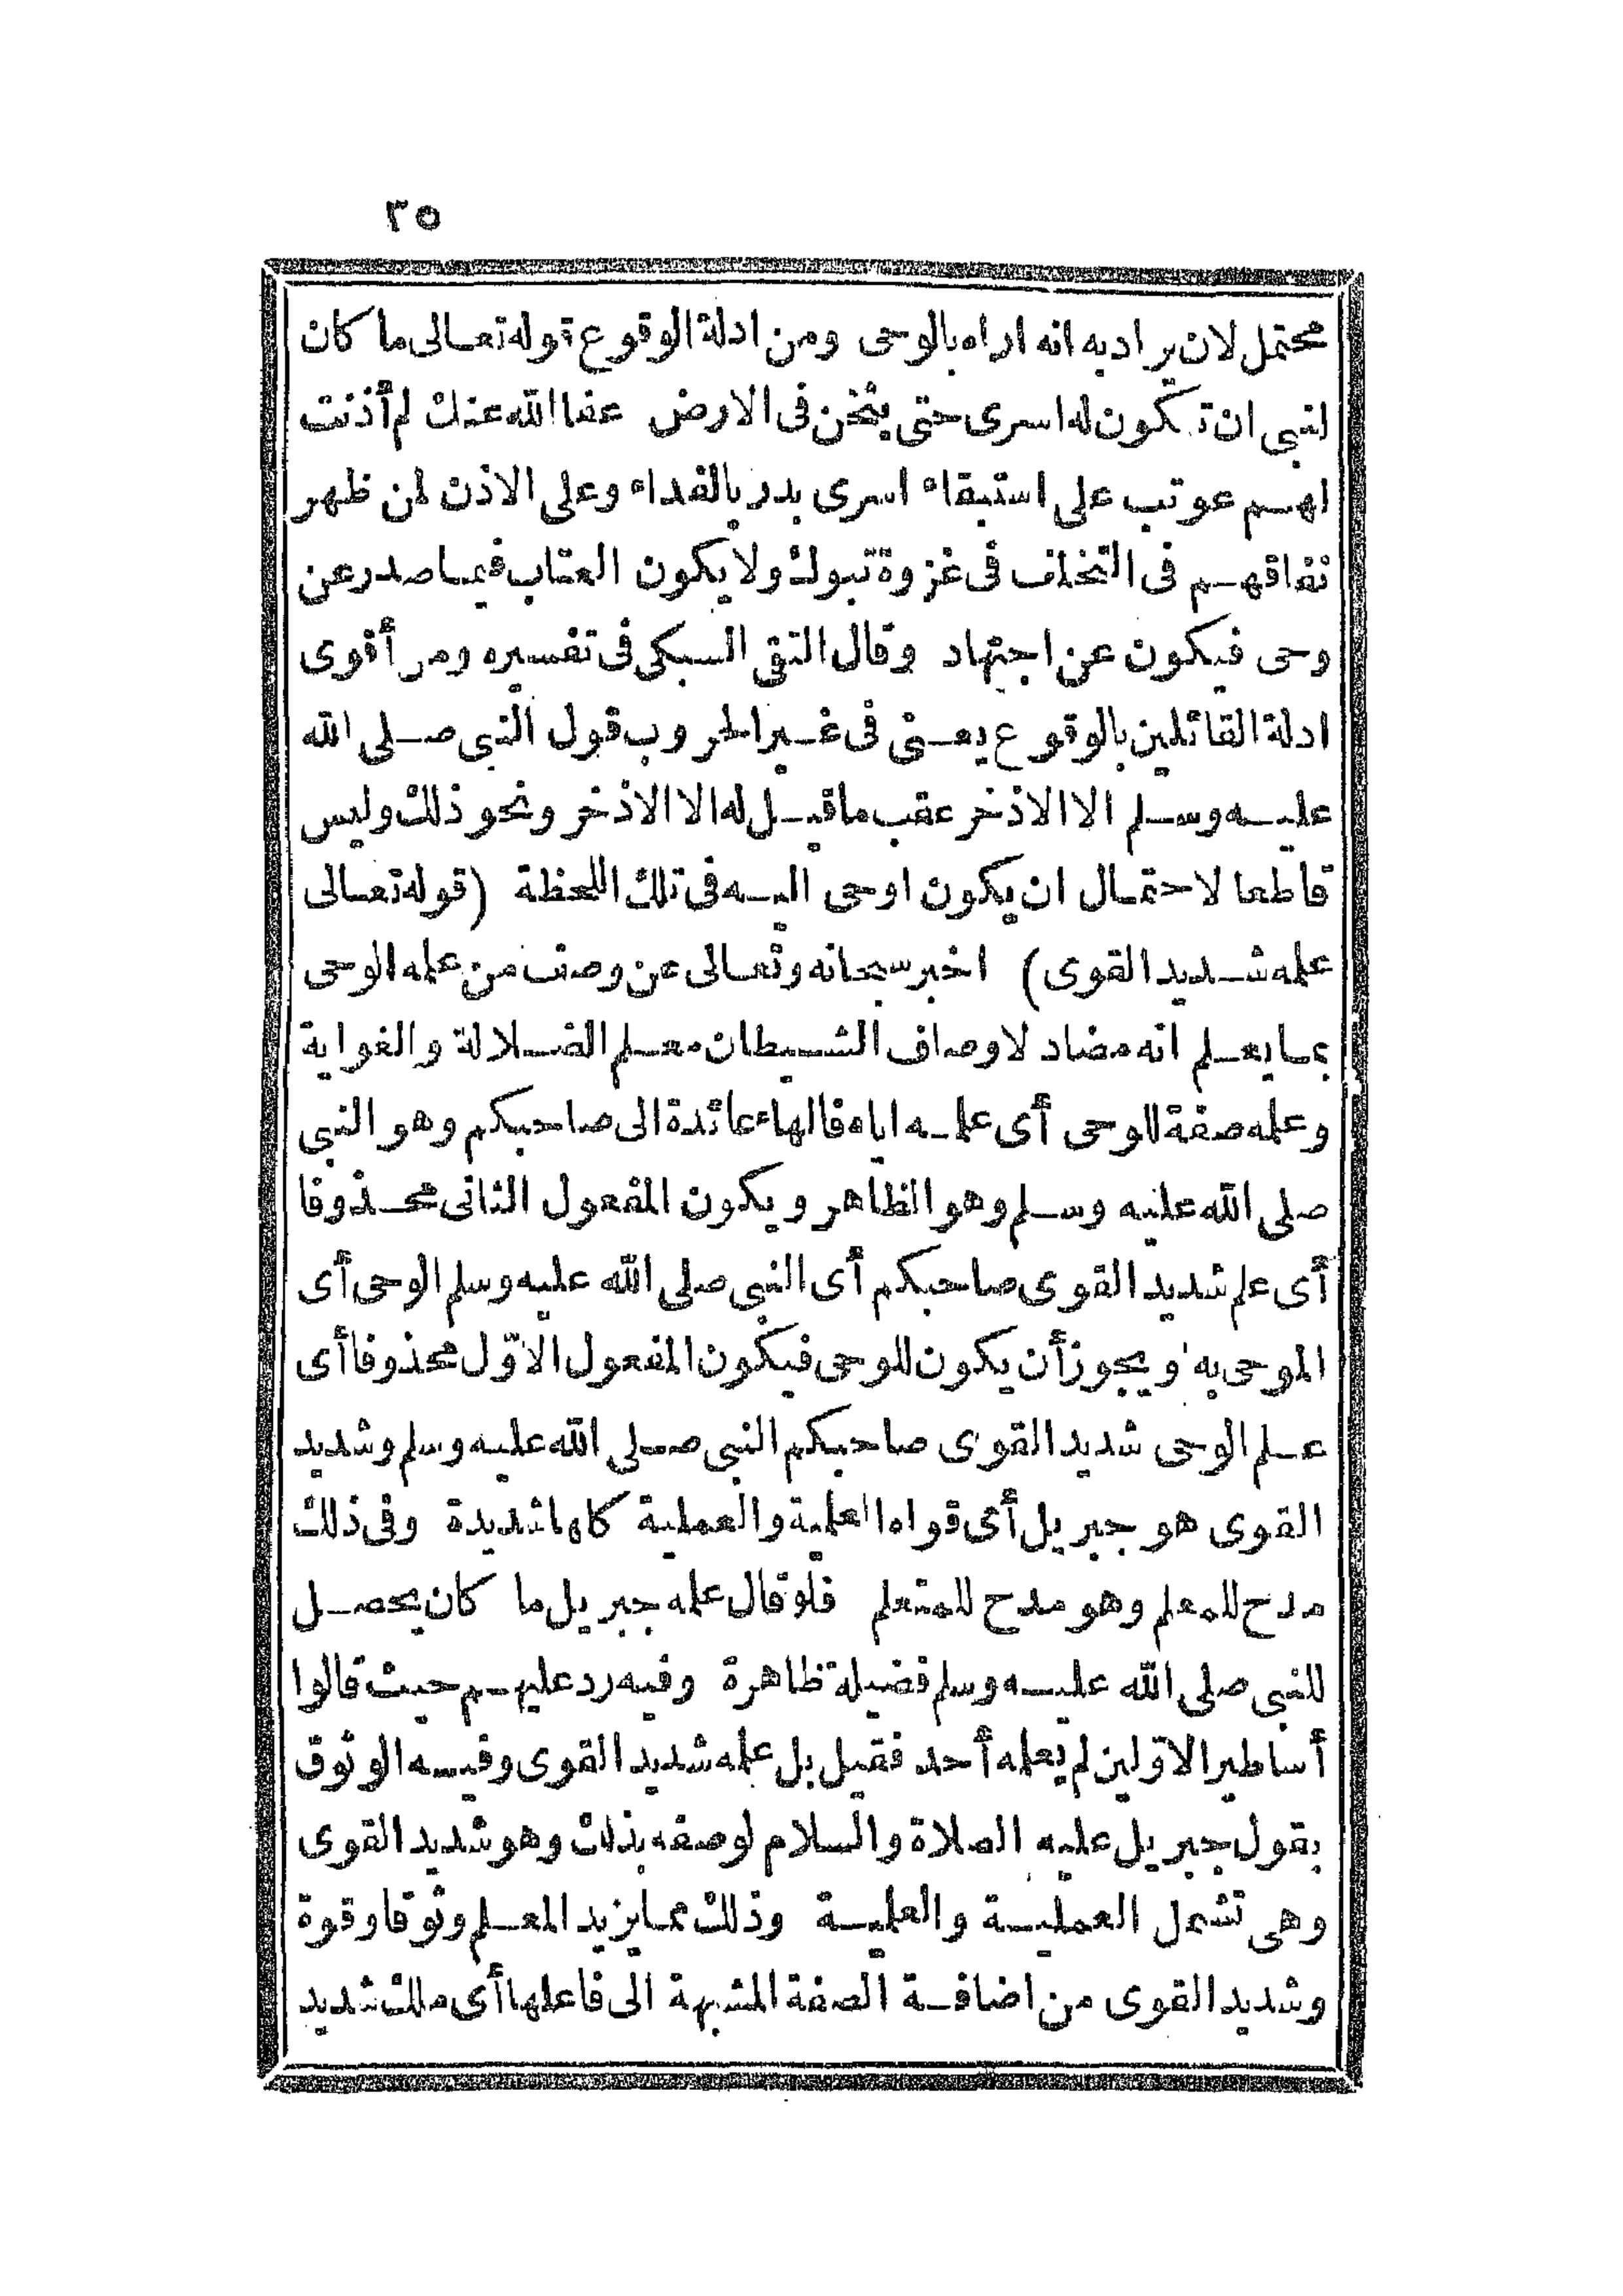 ٣٥
محتمل لان يراد به انه اراه بالوحى ومن ادلة الوقوع قوله تعالى ما كان
لنبى ان تكون له اسرى حتى يثخن فى الارض عفا الله عنك لم أذنت
لهم عوتب على استبقاء اسرى بدر بالفداء وعلى الاذن لمن ظهر
نفاقهم فى التخلف فى غزوة تبوك ولا يكون العتاب فيما صدر عن
وحى فيكون عن اجتهاد وقال التقى السبكى فى تفسيره ومن أقوى
ادلة القائلين بالوقوع يعنى فى غير الحروب قول النبى صلى الله
عليه وسلم الا الاذخر عقب ما قيل له الا الاذخر ونحو ذلك وليس
قاطعا لاحتمال ان يكون اوحى اليه فى تلك اللحظة (قوله تعالى
علمه شديد القوى) اخبر سبحانه وتعالى عن وصف من علمه الوحى
بما يعلم انه مضاد لاوصاف الشيطان معلم الضلالة والغواية
وعلمه صفة للوحى أى علمه اياه فالهاء عائدة الى صاحبكم وهو النبى
صلى الله عليه وسلم وهو الظاهر ويكون المفعول الثانى محذوفا
أى علم شديد القوى صاحبكم أى النبى صلى الله عليه وسلم الوحى أى
الموحى به ويجوز أن يكون للوحى فيكون المفعول الاوّل محذوفا أى
علم الوحى شديد القوى صاحبكم النبى صلى الله عليه وسلم وشديد
القوى هو جبريل أى قواه العلمية والعملية كلها شديدة وفى ذلك
مدح للمعلم وهو مدح للمتعلم فلو قال علمه جبريل ما كان يحصل
للنبى صلى الله عليه وسلم فضيلة ظاهرة وفيه رد عليهم حيث قالوا
أساطير الاوّلين لم يعلمه أحد فقيل بل علمه شديد القوى وفيه الوثوق
بقول جبريل عليه الصلاة والسلام لوصفه بذلك وهو شديد القوى
وهى تشمل العملية والعلمية وذلك مما يزيد المعلم وثوقا وقوة
وشديد القوى من اضافة الصفة المشبهة الى فاعلها أى ملك شديد